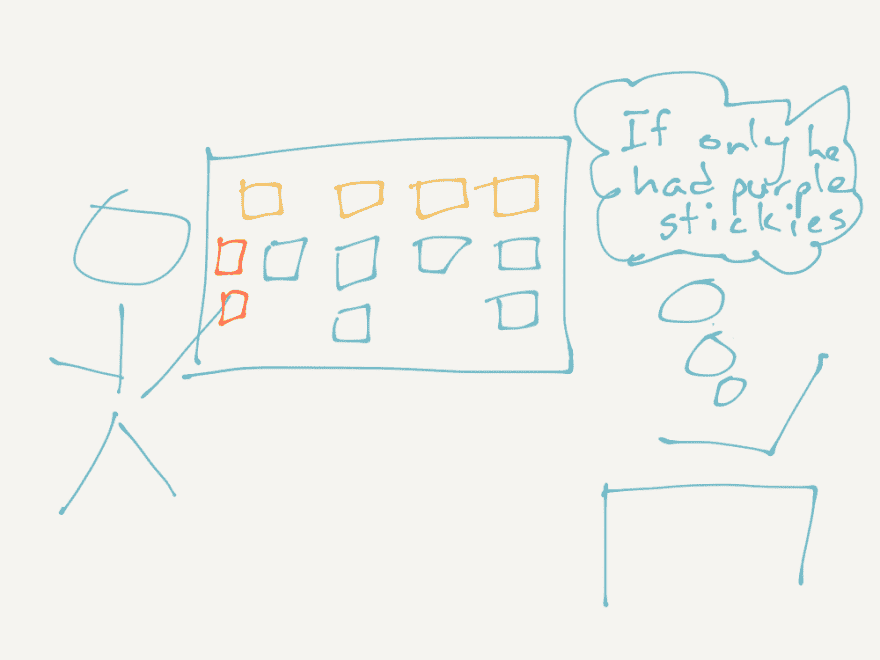 If only he
had purple
stickies